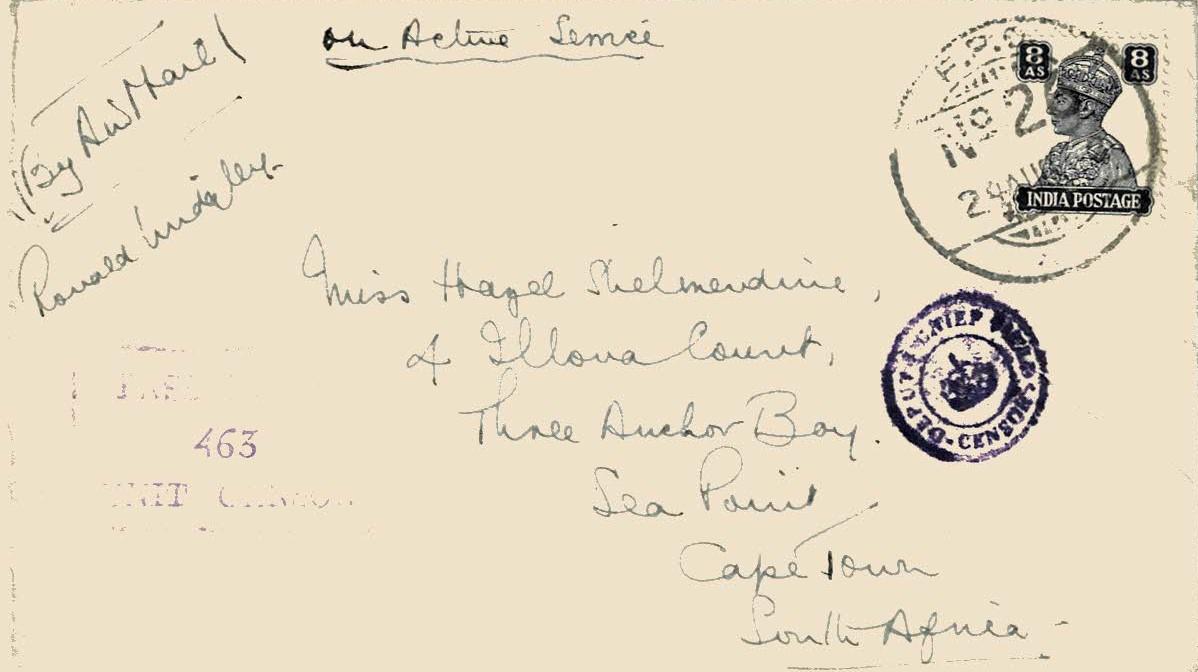 on Active Service
(By Air Mail)
Ronald
8 AS
8 AS
F.P.O.
No 2
24 AUG
INDIA POSTAGE
Miss Hazel Shelmerdine,
4 Illova Court,
Three Anchor Bay.
Sea Point
Cape Town
South Africa -
DEPUTY CHIEF FIELD CENSOR
463
UNIT CENSOR